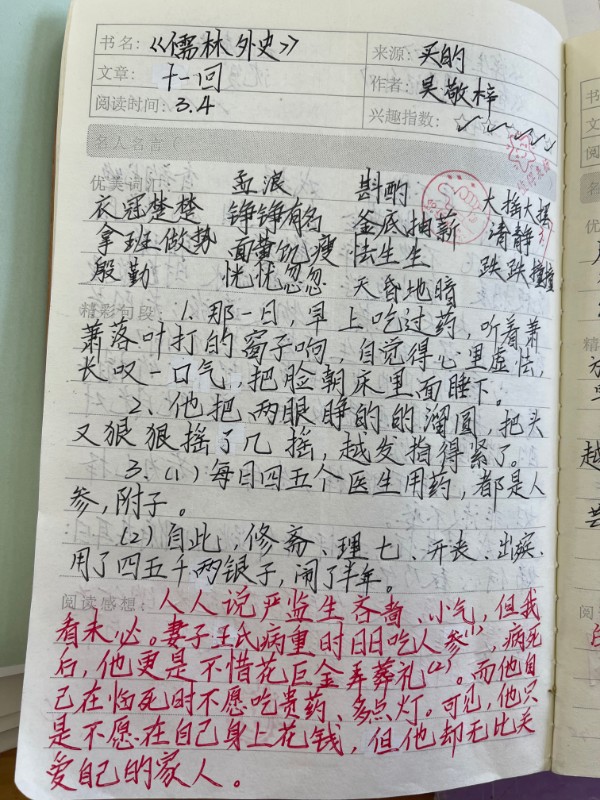 书名：《儒林外史》 来源：买的
文章：十一回 作者：吴敬梓
阅读时间：3.4 兴趣指数：✓✓✓✓✓
名人名言（
优美词 孟浪 斟酌 大摇大摆
衣冠楚楚 铮铮有名 釜底抽薪 清静
拿班做势 面黄饥瘦 怯生生 跌跌撞撞
殷勤 恍恍忽忽 天昏地暗
精彩句段：1.那一日，早上吃过药，听着萧
萧落叶打的窗子响，自觉得心里虚怯，
长叹一口气，把脸朝床里面睡下。
2、他把两眼睁的的溜圆，把头
又狠狠摇了几摇，越发指得紧了。
3.（1）每日四五个医生用药，都是人
参，附子。
（2）自此，修斋、理七、开丧、出殡，
用了四五千两银子，闹了半年。
阅读感想：人人说严监生吝啬、小气，但我
看未必。妻子王氏病重时日日吃人参⁽¹⁾，病死
后，他更是不惜花巨金弄葬礼⁽²⁾。而他自
己在怕死时不愿吃贵药、多点灯。可见，他只
是不愿在自己身上花钱，但他却无比关
爱自己的家人。